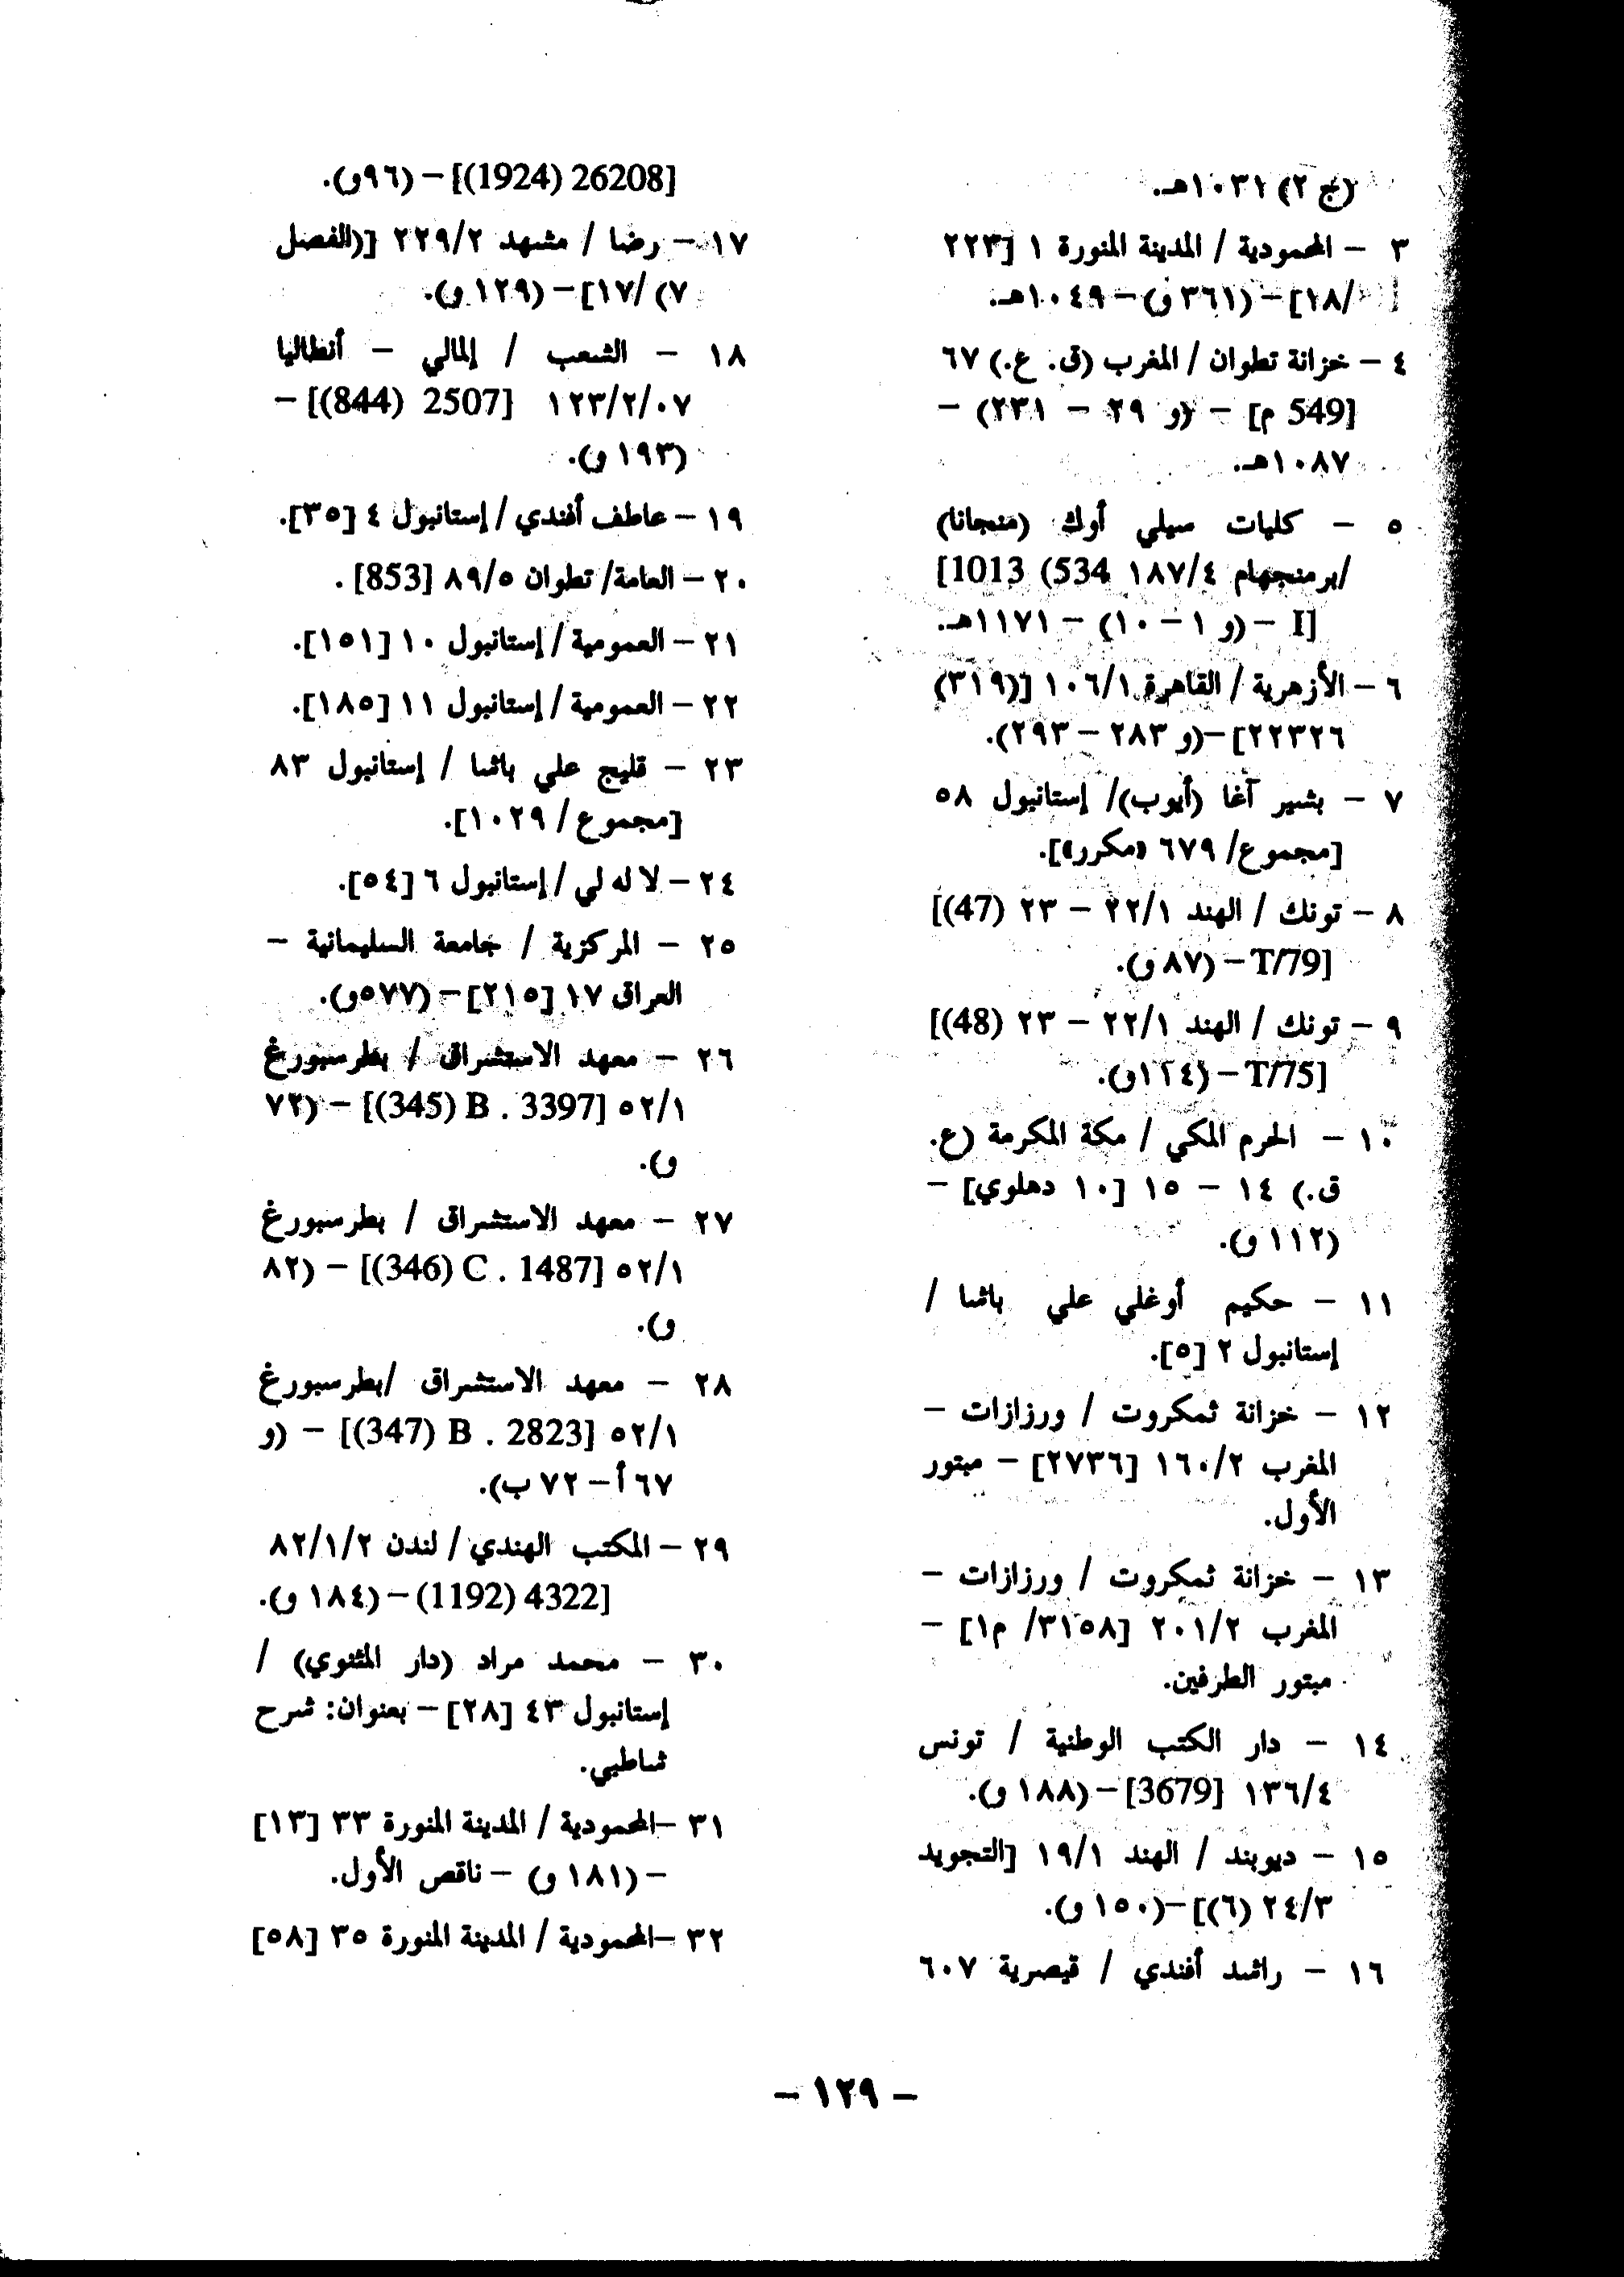 (ج ٢) ١٠٣١هـ.
٣ – المحمودية / المدينة المنورة ١ [٢٢٣
/١٨] – (٣٦١ و) – ١٠٤٩هـ.
٤ – خزانة تطوان / المغرب (ق. ع.) ٦٧
[549 م] – (و ٢٩ – ٢٣١) –
١٠٨٧هـ.
٥ – كليات سيلي أوك (منجانا)
/برمنجهام ١٨٧/٤ 534) 1013]
[I – (و ١ – ١٠) – ١١٧١هـ.
٦ – الأزهرية / القاهرة ١٠٦/١ [(٣١٩)
٢٢٣٢٦] – (و ٢٨٣ – ٢٩٣).
٧ – بشير آغا (أيوب)/ إستانبول ٥٨
[مجموع/ ٦٧٩ «مكرر»].
٨ – تونك / الهند ٢٢/١ – ٢٣ [(47)
T/79] – (٨٧ و).
٩ – تونك / الهند ٢٢/١ – ٢٣ [(48)
T/75] – (١٢٤و).
١٠ – الحرم المكي / مكة المكرمة (ع.
ق.) ١٤ – ١٥ [١٠ دهلوي] –
(١١٢ و).
١١ – حكيم أوغلي علي باشا /
إستانبول ٢ [٥].
١٢ – خزانة ثمكروت / ورزازات –
المغرب ١٦٠/٢ [٢٧٣٦] – مبتور
الأول.
١٣ – خزانة ثمكروت / ورزازات –
المغرب ٢٠١/٢ [٣١٥٨/ م١] –
مبتور الطرفين.
١٤ – دار الكتب الوطنية / تونس
١٣٦/٤ [3679] – (١٨٨ و).
١٥ – ديوبند / الهند ١٩/١ [التجويد
٢٤/٣ (٦)] – (١٥٠ و).
١٦ – راشد أفندي / قيصرية ٦٠٧
[26208 (1924)] – (٩٦و).
١٧ – رضا / مشهد ٢٢٩/٢ [(الفصل
٧) /١٧] – (١٢٩ و).
١٨ – الشعب / إلمالي – أنطاليا
١٢٣/٢/٠٧ [2507 (844)] –
(١٩٣ و).
١٩ – عاطف أفندي / إستانبول ٤ [٣٥].
٢٠ – العامة/ تطوان ٨٩/٥ [853] .
٢١ – العمومية / إستانبول ١٠ [١٥١].
٢٢ – العمومية / إستانبول ١١ [١٨٥].
٢٣ – قليج علي باشا / إستانبول ٨٣
[مجموع / ١٠٢٩].
٢٤ – لا له لي / إستانبول ٦ [٥٤].
٢٥ – المركزية / جامعة السليمانية –
العراق ١٧ [٢١٥] – (٥٧٧و).
٢٦ – معهد الاستشراق / بطرسبورغ
٥٢/١ [B . 3397 (345)] – (٧٢
و).
٢٧ – معهد الاستشراق / بطرسبورغ
٥٢/١ [C . 1487 (346)] – (٨٢
و).
٢٨ – معهد الاستشراق /بطرسبورغ
٥٢/١ [B . 2823 (347)] – (و
٦٧أ – ٧٢ ب).
٢٩ – المكتب الهندي / لندن ٨٢/١/٢
[4322 (1192) – (١٨٤ و).
٣٠ – محمد مراد (دار المثنوي) /
إستانبول ٤٣ [٢٨] – بعنوان: شرح
شاطبي.
٣١ –المحمودية / المدينة المنورة ٣٣ [١٣]
– (١٨١ و) – ناقص الأول.
٣٢ –المحمودية / المدينة المنورة ٣٥ [٥٨]
– ١٢٩ –